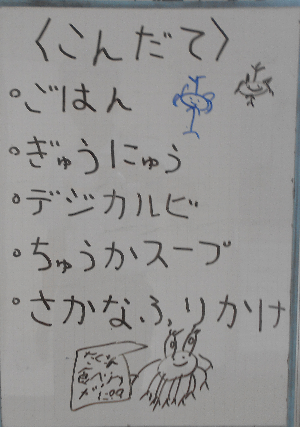 〈こんだて〉
・ごはん
・ぎゅうにゅう
・デジカルビ
・ちゅうかスープ
・さかなふりかけ